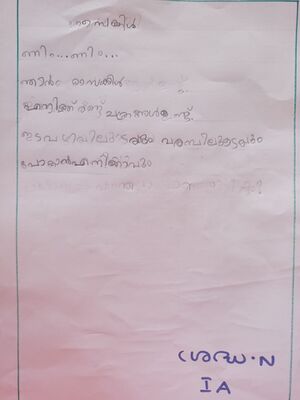 സൈക്കിൾ
ണിം...ണിം...
ഞാൻ സൈക്കിൾ
എനിക്ക് രണ്ട് ചക്രങ്ങൾ ഉണ്ട്.
ഇടവഴിയിലൂടെയും വരമ്പിലൂടെയും
പോകാൻ എനിക്കാവും
ശ്രദ്ധ.N
I A